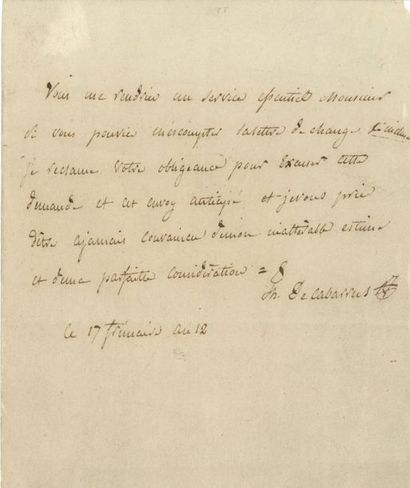 Vous me rendriez un service essentiel Monsieur
si vous pouviez m'escompter la lettre de change
je reclame votre obligeance pour excuser cette
demande et cet envoy anticipé et je vous prie
d'être ajamais convaincu de mon inalterable estime
et d'une parfaitte consideration =
Th. De Cabarrus
le 17 frimaire an 12